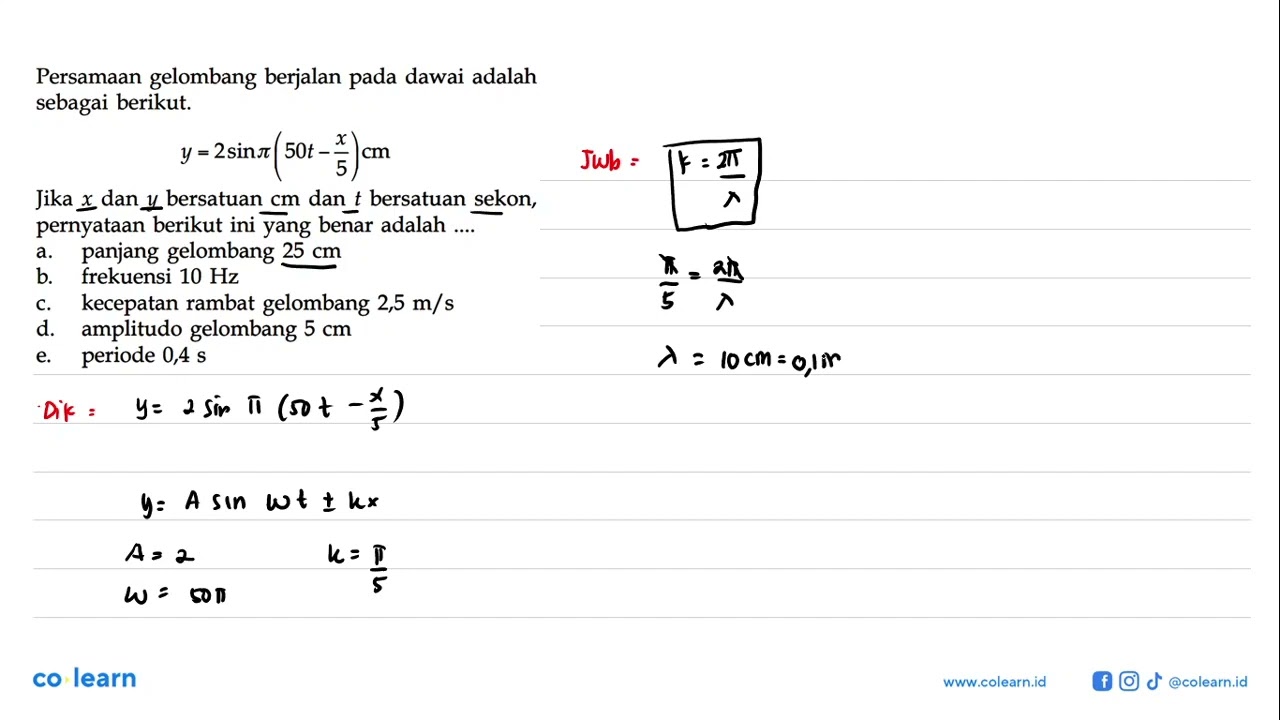 Persamaan gelombang berjalan pada dawai adalah
sebagai berikut.
y = 2 sin π(50t − x/5) cm
Jika x dan y bersatuan cm dan t bersatuan sekon,
pernyataan berikut ini yang benar adalah ....
a. panjang gelombang 25 cm
b. frekuensi 10 Hz
c. kecepatan rambat gelombang 2,5 m/s
d. amplitudo gelombang 5 cm
e. periode 0,4 s
Dik = y = 2 sin π (50t − x/5)
y = A sin wt ± kx
A = 2 k = π/5
w = 50π
Jwb = k = 2π/λ
π/5 = 2π/λ
λ = 10 cm = 0,1 m
co learn
www.colearn.id @colearn.id